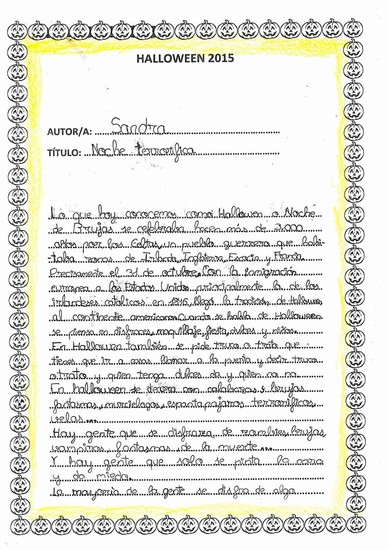 HALLOWEEN 2015
AUTOR/A: Sandra
TÍTULO: Noche terrorífica
Lo que hoy conocemos como Hallowen o Noche
de Brujas se celebraba hacen más de 3.000
años por los Celtas, un pueblo guerrero que habi-
taba zonas de Irlanda, Inglaterra, Escocia y Francia.
Precisamente el 31 de octubre. Con la inmigración
europea a los Estados Unidos, principalmente la de los
irlandeses catolicos en 1846, llegó la tradicion de Hallowen
al continente americano. Cuando se habla de Halloween
se piensa en disfraces, maquillaje, fiesta, dulces y niños.
En Hallowen también se pide truco o trato que
tienes que ir a casas llamar a la puerta y decir truco
o trato y quien tenga dulces da y quien no no.
En halloween se decora con calabazas, brujas
fantasmas, murcielagos, espantapajaros terrorificos,
velas...
Hay gente que se disfraza de zombies, brujas
vampiros, fantasmas, de la muerte...
Y hay gente que solo se pinta la cara
y de miedo.
La mayoria de la gente se disfra de algo